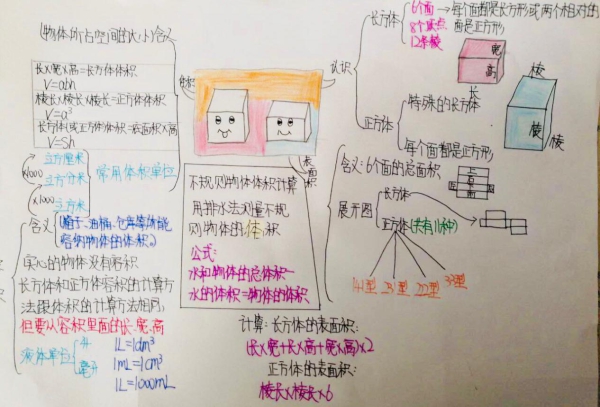 (物体所占空间的大小)含义
体积
长×宽×高=长方体体积
V=abh
棱长×棱长×棱长=正方体体积
V=a³
长方体(或正方体体积=底面积×高
V=Sh
常用体积单位
立方厘米
×1000
立方分米
×1000
立方米
含义
(箱子、油桶、仓库等所能
容纳物体的体积。)
实心的物体没有容积
长方体和正方体容积的计算方
法跟体积的计算方法相同,
但要从容积里面的长、宽、高
液体单位
升
毫升
1L=1dm³
1mL=1cm³
1L=1000mL
积
不规则物体体积计算
用排水法测量不规
则物体的体积
公式:
水和物体的总体积一
水的体积=物体的体积
认识
长方体
6个面→每个面都是长方形或两个相对的
面是正方形
8个顶点
12条棱
宽
高
长
正方体
特殊的长方体
每个面都是正方形
棱
棱
棱
表面积
含义:6个面的总面积
展开图
长方体
正方体(共有11种)
141型
231型
222型
33型
计算:长方体的表面积:
(长×宽+长×高+宽×高)×2
正方体的表面积:
棱长×棱长×6